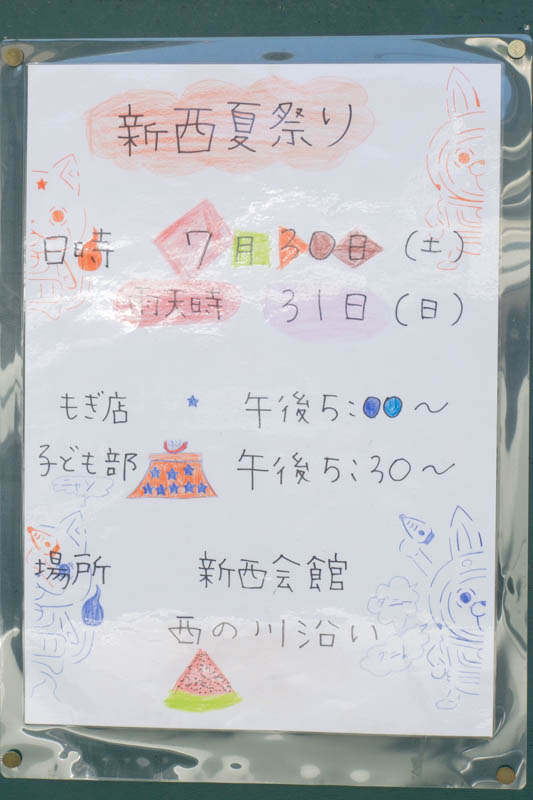 新西夏祭り
日時 7月30日(土)
雨天時 31日(日)
もぎ店 午後5:00～
子ども部 午後5:30～
場所 新西会館
西の川沿い